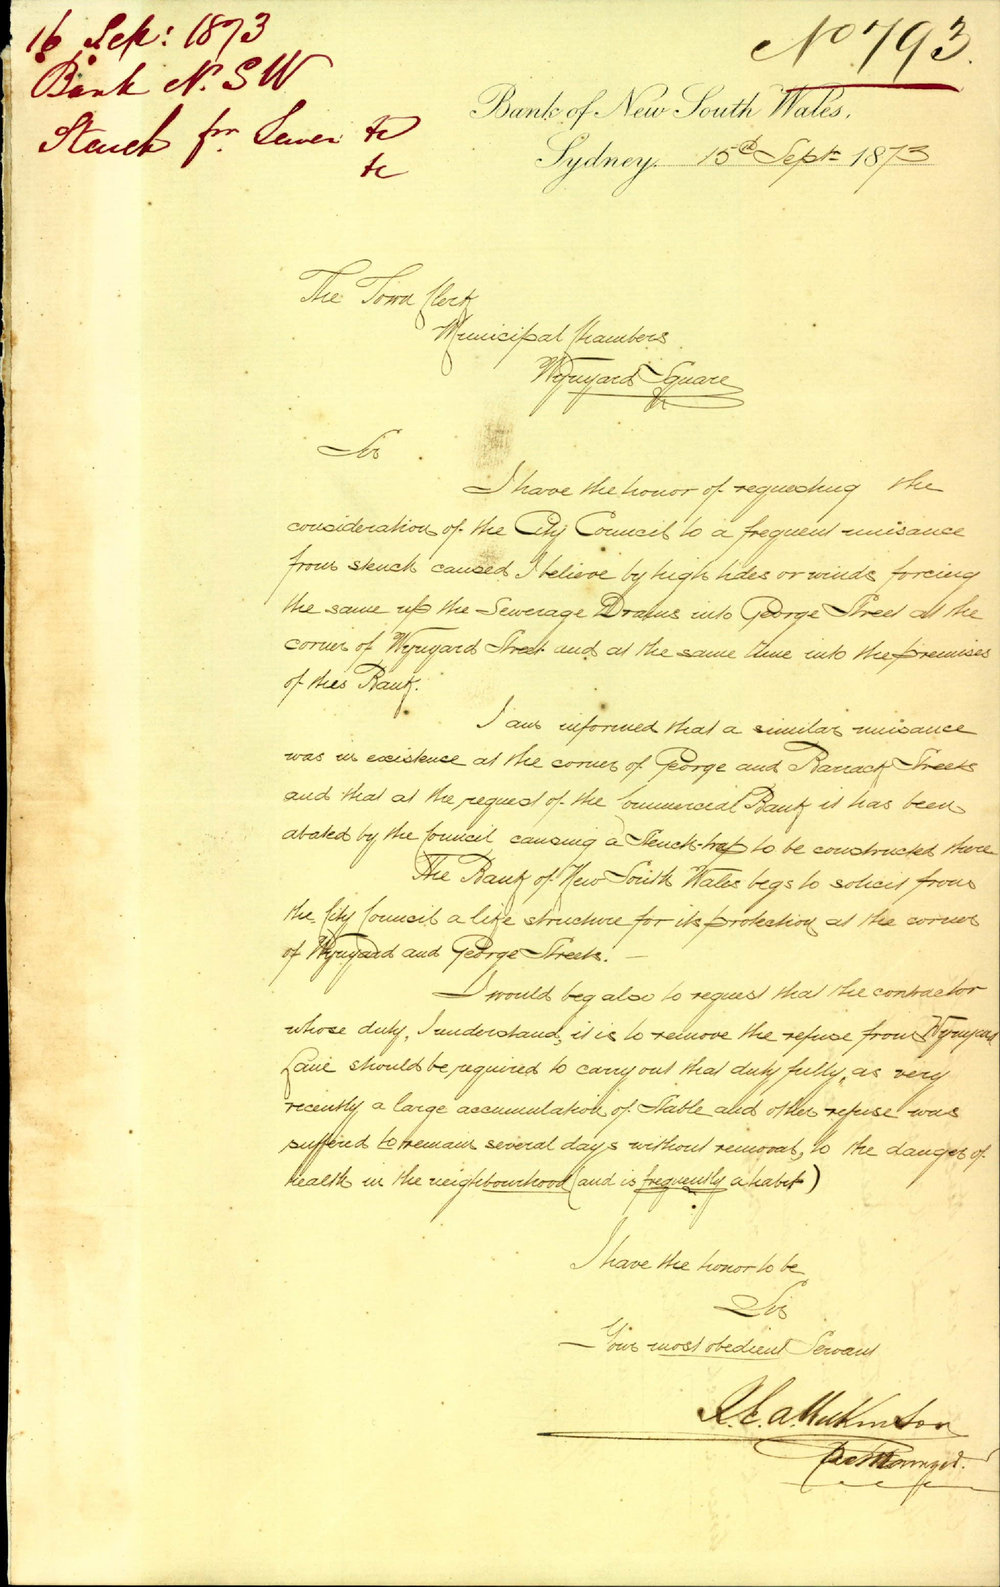 16 Sep: 1873
Bank N. S W
Stench fm. Sewer &c
&c
No 793.
Bank of New South Wales,
Sydney. 15th Sept. 1873
The Town Clerk
Municipal Chambers
Wynyard Square
Sir
I have the honor of requesting the
consideration of the City Council to a frequent nuisance
from stench caused I believe by high tides or winds forcing
the same up the Sewerage Drains into George Street at the
corner of Wynyard Street and at the same time into the premises
of this Bank.
I am informed that a similar nuisance
was in existence at the corner of George and Barrack Streets
and that at the request of the Commercial Bank it has been
abated by the Council causing a Stench-trap to be constructed there
The Bank of New South Wales begs to solicit from
the City Council a like structure for its protection at the corner
of Wynyard and George Streets. —
I would beg also to request that the contractor
whose duty, I understand, it is to remove the refuse from Wynyard
Lane should be required to carry out that duty fully, as very
recently a large accumulation of Stable and other refuse was
suffered to remain several days without removal, to the danger of
health in the neighbourhood (and is frequently a habit)
I have the honor to be
Sir
Your most obedient Servant
Manager.